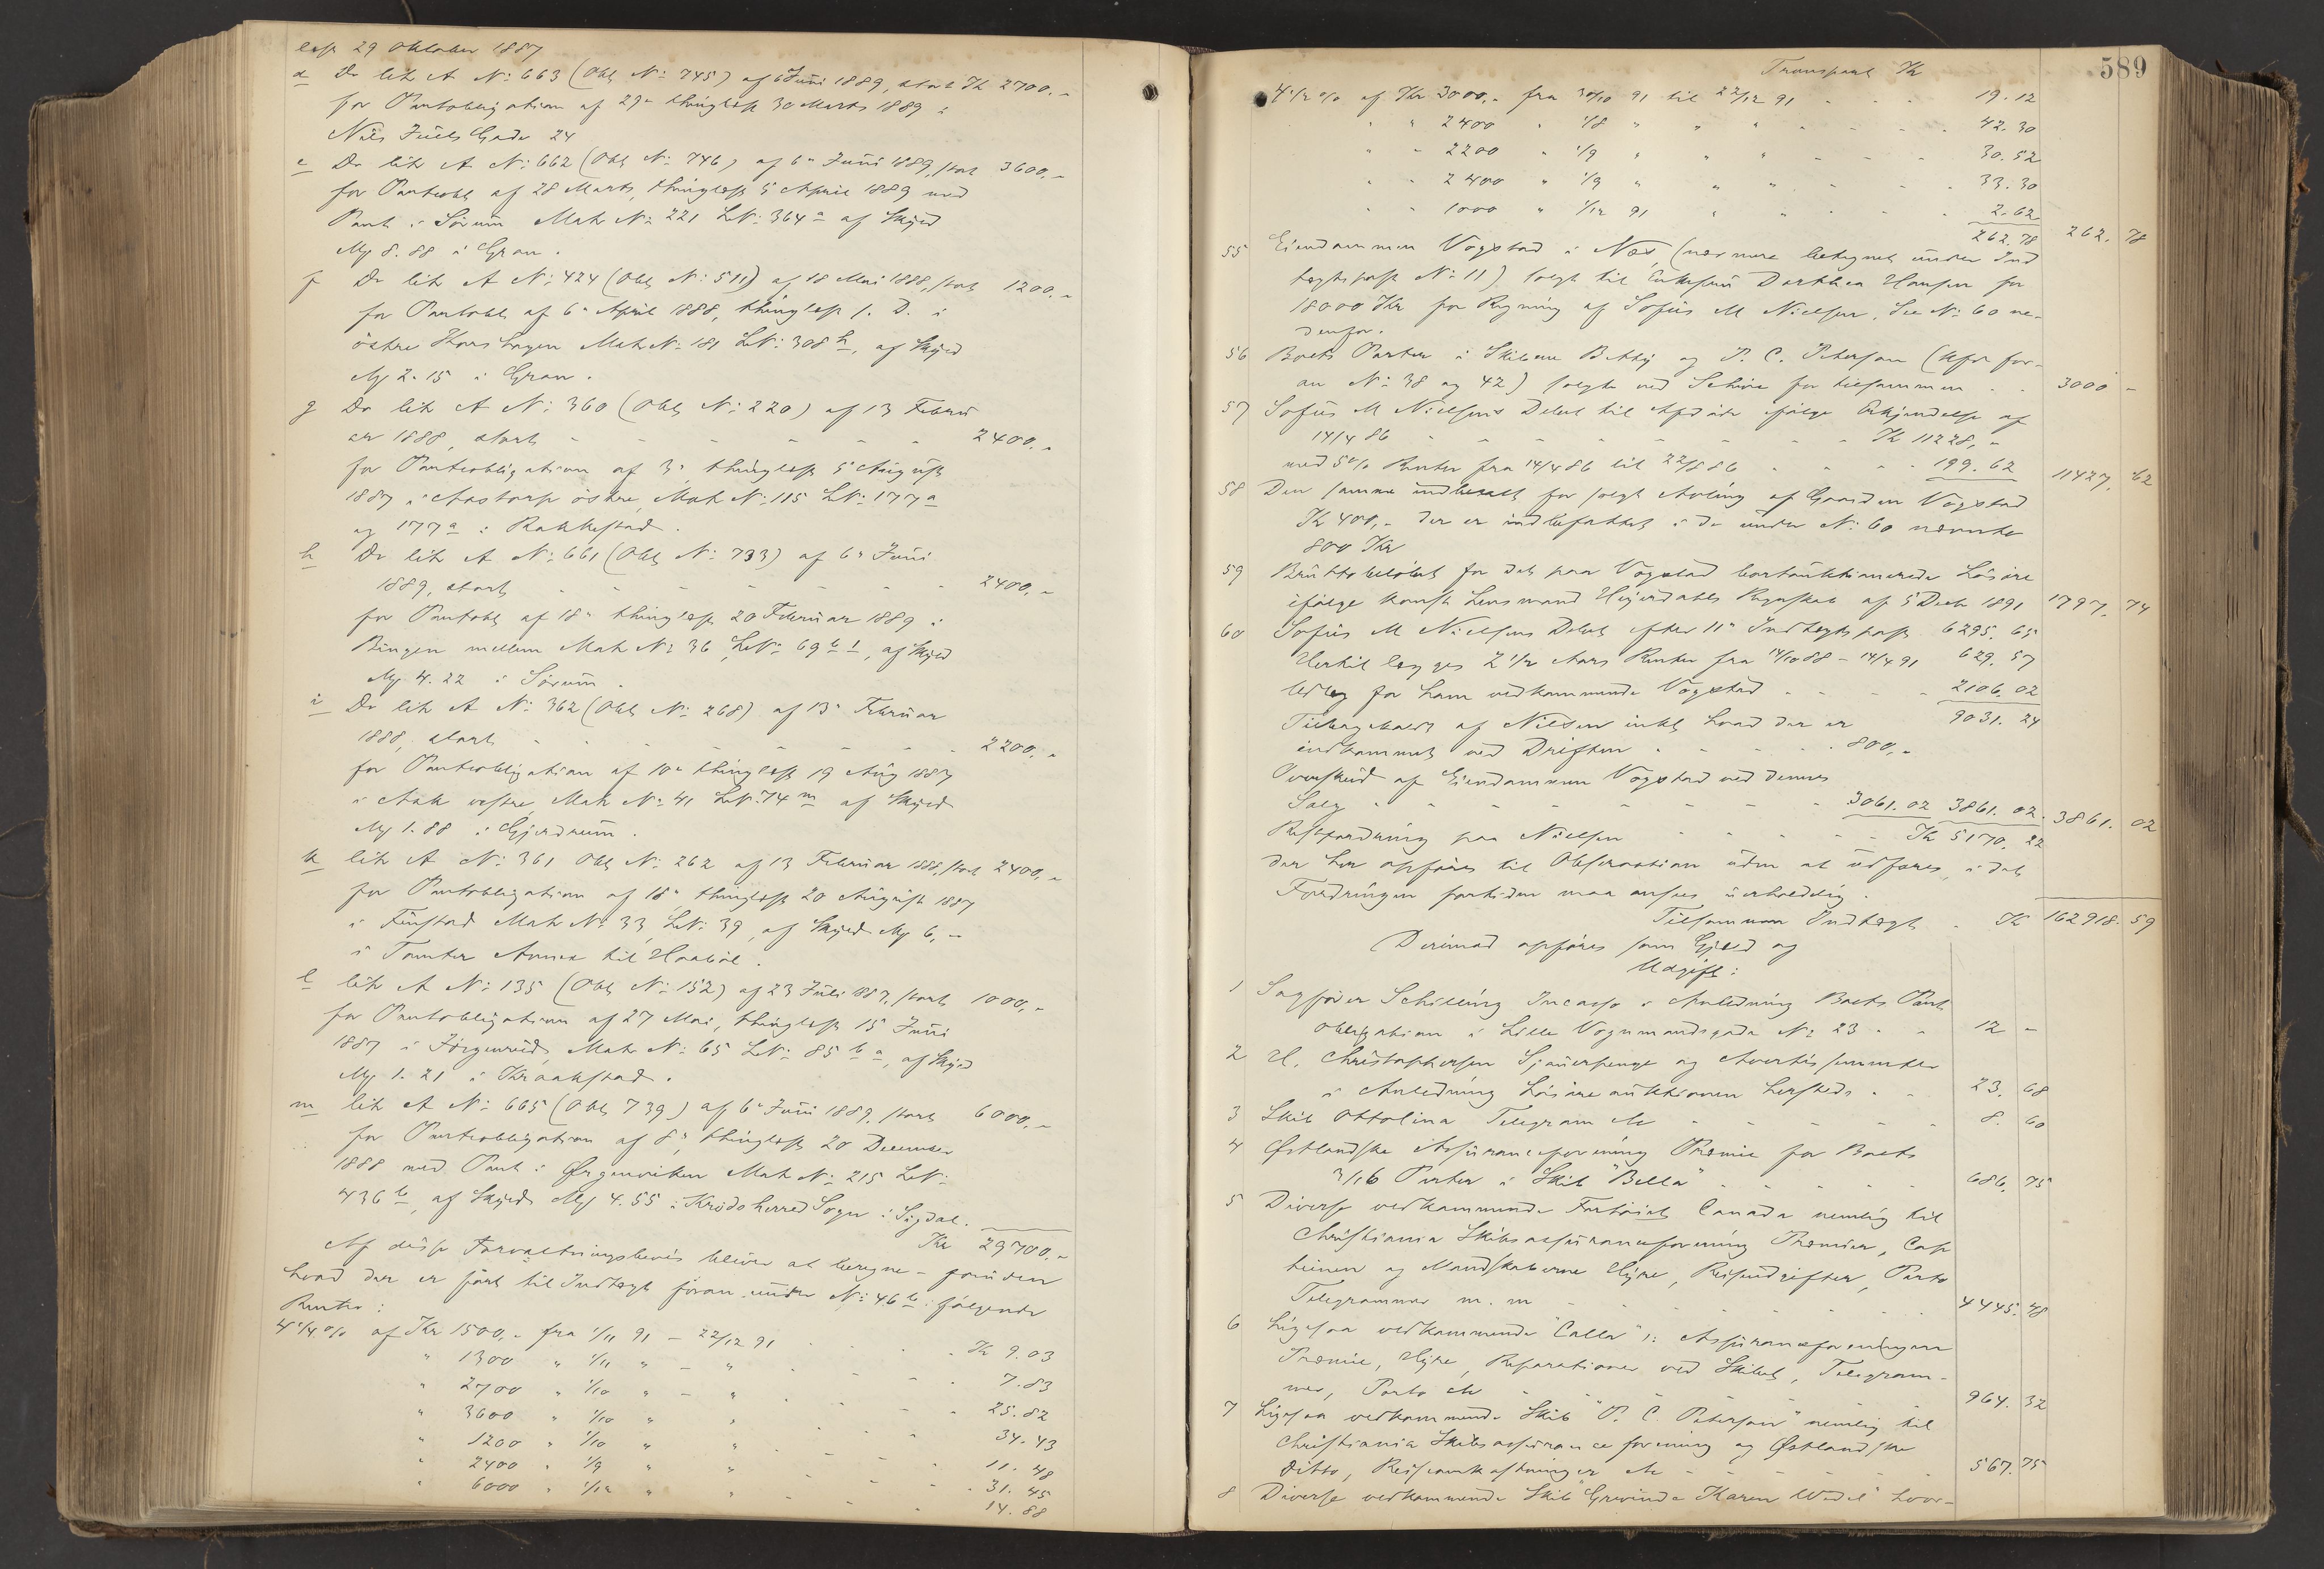 læst 29 Oktober 1887
d Do litr A No: 663 (Obl No: 745) af 6 Juni 1889, stort Kr 2700,-
for Pantobligation af 29" thinglæst 30 Marts 1889 i
Niels Juels Gade 24
e Do litr A No: 662 (Obl No: 746) af 6" Juni 1889, stort 3600,-
for Panteobl af 28 Marts, thinglæst 5 April 1889 med
Pant i Sørum Matr No: 221 LNo: 364 a af Skyld
My 8.88 i Gran.
f Do litr A No: 424 (Obl No: 511) af 18 Mai 1888, stort 1200,-
for Pantobl af 6" April 1888, thinglæst s. D. i
østre Matr No: 181 LNo: 308 h, af Skyld
My 2.15 i Gran.
g Do litr A No: 360 (Obl No: 220) af 13 Febru
ar 1888, stort - - - - - - 2400,-
for Panteobligation af 3" thinglæst 5 August
1887 i Aastorp østre, Matr No: 115 LNo: 177 a
og 177 a i Rakkestad.
h Do litr A No: 661 (Obl No: 733) af 6" Juni
1889, stort - - - - - - 2400,-
for Pantobl af 18" thinglæst 20 Februar 1889 i
Bingen mellem Matr No: 36, LNo: 69 b 1, af Skyld
My. 4.22 i Sørum.
i Do litr A No: 362 (Obl No: 268) af 13" Februar
1888, stort - - - - - - 2200,-
for Panteobligation af 10" thinglæst 19 Aug 1887
i Aak vestre, Matr No: 41 LNo: 74 m af Skyld
My 1.88 i Gjerdrum.
k litr A No: 361 Obl No: 262 af 13 Februar 1888, stort 2400,-
for Pantobligation af 18" thinglæst 20 August 1887
i Finstad Matr No: 33, LNo: 39, af Skyld My 6,-
i Tomter Annex til Haabøl.
l litr A No: 135 (Obl No: 152) af 23 Juli 1887, stort 1000,-
for Pantobligation af 27 Mai, thinglæst 15 Juni
1887 i Jørgenrud, Matr No: 65 LNo: 85 b a, af Skyld
My 1.21 i Kraakstad.
m litr A No: 665 (Obl 739) af 6" Juni 1889, stort 6000,-
for Panteobligation af 8", thinglæst 20 December
1888 med Pant i Ørgenviken Matr No: 215 LNo:
436 b, af Skyld My 4.55 i Krødsherred Sogn i Sigdal.
Kr 29700,-
Af disse Forvaltningsbevis bliver at beregne - foruden
hvad der er ført til Indtægt foran under No: 46 b: følgende
Renter:
4 1/4 % af Kr 1500,- fra 1/11 91 - 22/12 91 - - - Kr 9.03
" 1300 " 1/11 " - " - - - 7.83
" 2700 " 1/10 " - " - - - 25.82
" 3600 " 1/10 " " - - - 34.43
" 1200 " 1/10 " " - - - 11.48
" 2400 " 1/9 " " - - - 31.45
" 6000 " 1/12 " " - - - 14.88
589
Transport Kr
4 1/2 % af Kr 3000,- fra 30/10 91 til 22/12 91 - - - 19.12
" " 2400 " 1/8 " " " - - - 42.30
" " 2200 " 1/9 " " " - - - 30.52
" " 2400 " 1/9 " " " - - - 33.30
" " 1000 " 1/12 91 " " - - - 2.62
262.78 262.78
55 Eiendommen Vogstad i Næs, (nærmere betegnet under Ind
tægtspost No: 11) solgt til Enkefru Dorthea Hansen for
18000 Kr for Regning af Sofus M Nielsen, See No: 60 ne-
denfor.
56 Boets Parter i Skibene Betty og P. C. Petersen (Kfr for-
an No: 38 og 42) solgte ved for tilsammen - - 3000 -
57 Sofus M Nielsens Debet til Afdøde ifølge Erkjendelse af
14/4 86 - - - - - - Kr 11228,-
med 5% Renter fra 14/4 86 til 22/8 86 - - - 199.62 11427.62
58 Den samme indbetalt for solgt Avling af Gaarden Vogstad
Kr 400,- der er indbefattet i de under No: 60 nævnte
800 Kr
59 Bruttobeløbet for det paa Vogstad bortauktionerede Løsøre
ifølge konst Lensmand Regnskab af 5 Decbr 1891 1797.74
60 Sofus M Nielsens Debet efter 11" Indtægtspost 6295.65
Hertil lægges 2 1/2 Aars Renter fra 14/10 88 - 14/4 91 629.57
Udlæg for ham vedkommende Vogstad - - - - 2106.02
9031.24
Tilbagebetalt af Nielsen inkl hvad der er
indkommet ved Driften - - - - - 800,-
Overskud af Eiendommen Vogstad ved dennes
Salg - - - - - - 3061.02 3861.02 3861.02
Restfordring paa Nielsen - - - - Kr 5170.22
der her opføres til Observation uden at udføres, i det
Fordringen fortiden maa ansees uerholdelig.
Tilsammen Indtægt - Kr 162918.59
Derimod opføres som Gjæld og
Udgift:
1 Sagfører Schilling Incasso i Anledning Boets Pant
obligation i Lille Vognmandsgade No: 23 - - 12 -
2 H. Christophersen Sjauerpenge og Avertissementer
i Anledning Løsøreauktionen hersteds - - 23.68
3 Skib Ottolina Telegram etc - - - - - 8.60
4 Østlandske Assuranceforening Præmie for Boets
3/16 Parter i Skib "Bella" - - - - - 686.75
5 Diverse vedkommende Fartøiet Canada nemlig til
Christiania Skibsassuranceforening Præmier, Cap
teinen og Mandskaberne Hyre, Reiseudgifter, Porto
Telegrammer m. m - - - - - - 4445.48
6 Ligesaa vedkommende "Calla" : Assuranceforeningen
Præmie, Hyre, Reparationer ved Skibet, Telegram-
mer, Porto etc - - - - - - 964.32
7 Ligesaa vedkommende Skib "P. C. Petersen" nemlig til
Christiania Skibsassuranceforening og Østlandske
ditto, Reiseomkostninger etc - - - - - 567.75
8 Diverse vedkommende Skib "Grevinde Karen Wedel" hvor-